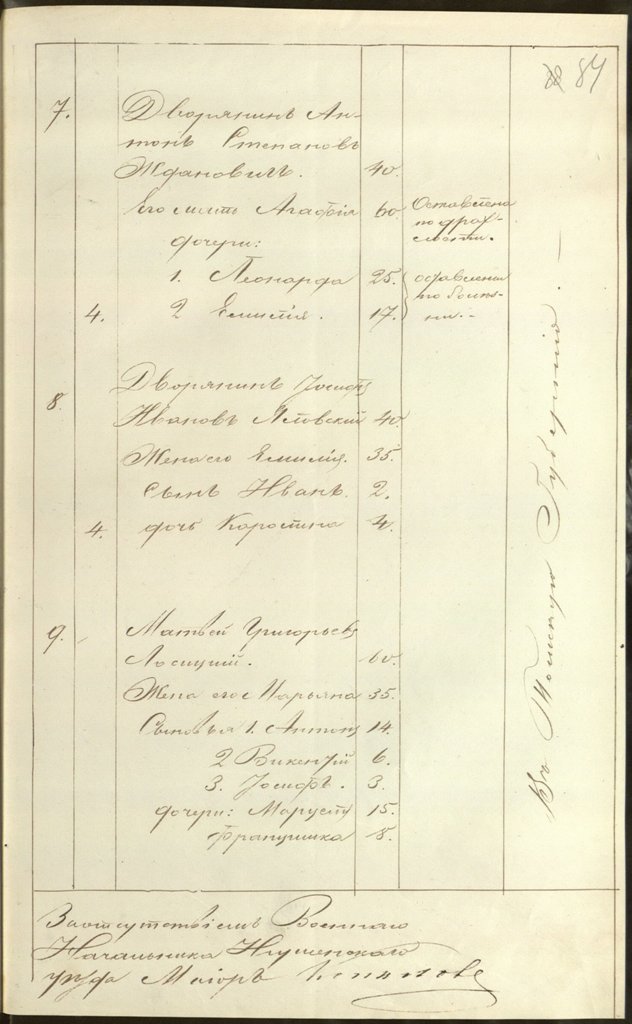 84
7. Дворянинъ Ан-
тонъ Степановъ
Ждановичъ. 40.
Его мать Агафія 60. Оставлена
по дрях-
лости.
дочери:
1. Леонарда 25. оставлены
по болѣз-
ни.
4. 2 Емилія. 17.
8. Дворянинъ Іосифъ
Ивановъ 40
Жена его Емилія. 35.
Сынъ Иванъ. 2.
4. дочь 4.
9. Матвей Григорьевъ
Лосицкій. 60.
Жена его Марьяна 35.
Сыновья 1. Антонъ 14.
2 Викентій 6.
3. Іосифъ. 3.
дочери: 15.
Францишка 8.
Въ Томскую Губернію. —
За отсутствіемъ Военнаго
Начальника Игуменскаго
уѣзда Маіоръ